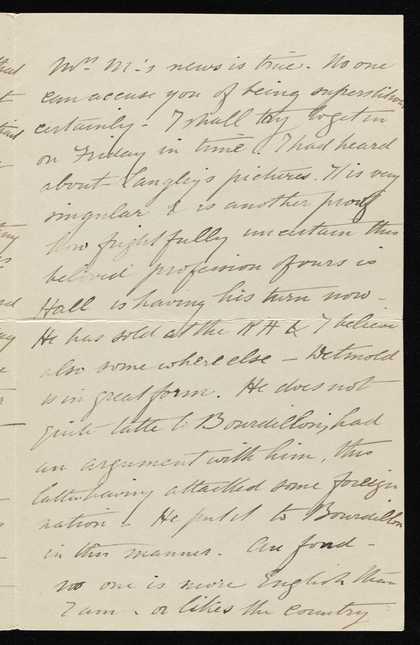 Mrs M's news is true. No one
can accuse you of being superstitious
certainly - I shall try to get in
on Friday in time. I had heard
about Langley's pictures. It is very
singular & is another proof
how frightfully uncertain this
beloved profession of ours is
Hall is having his turn now -
He has sold at the R H & I believe
also somewhere else - Detmold
is in great form. He does not
quite take to Bourdillon, had
an argument with him, this
latter having attacked some foreign
nation - He put it to Bourdillon
in this manner. Au fond -
no one is more English than
I am - or likes the country